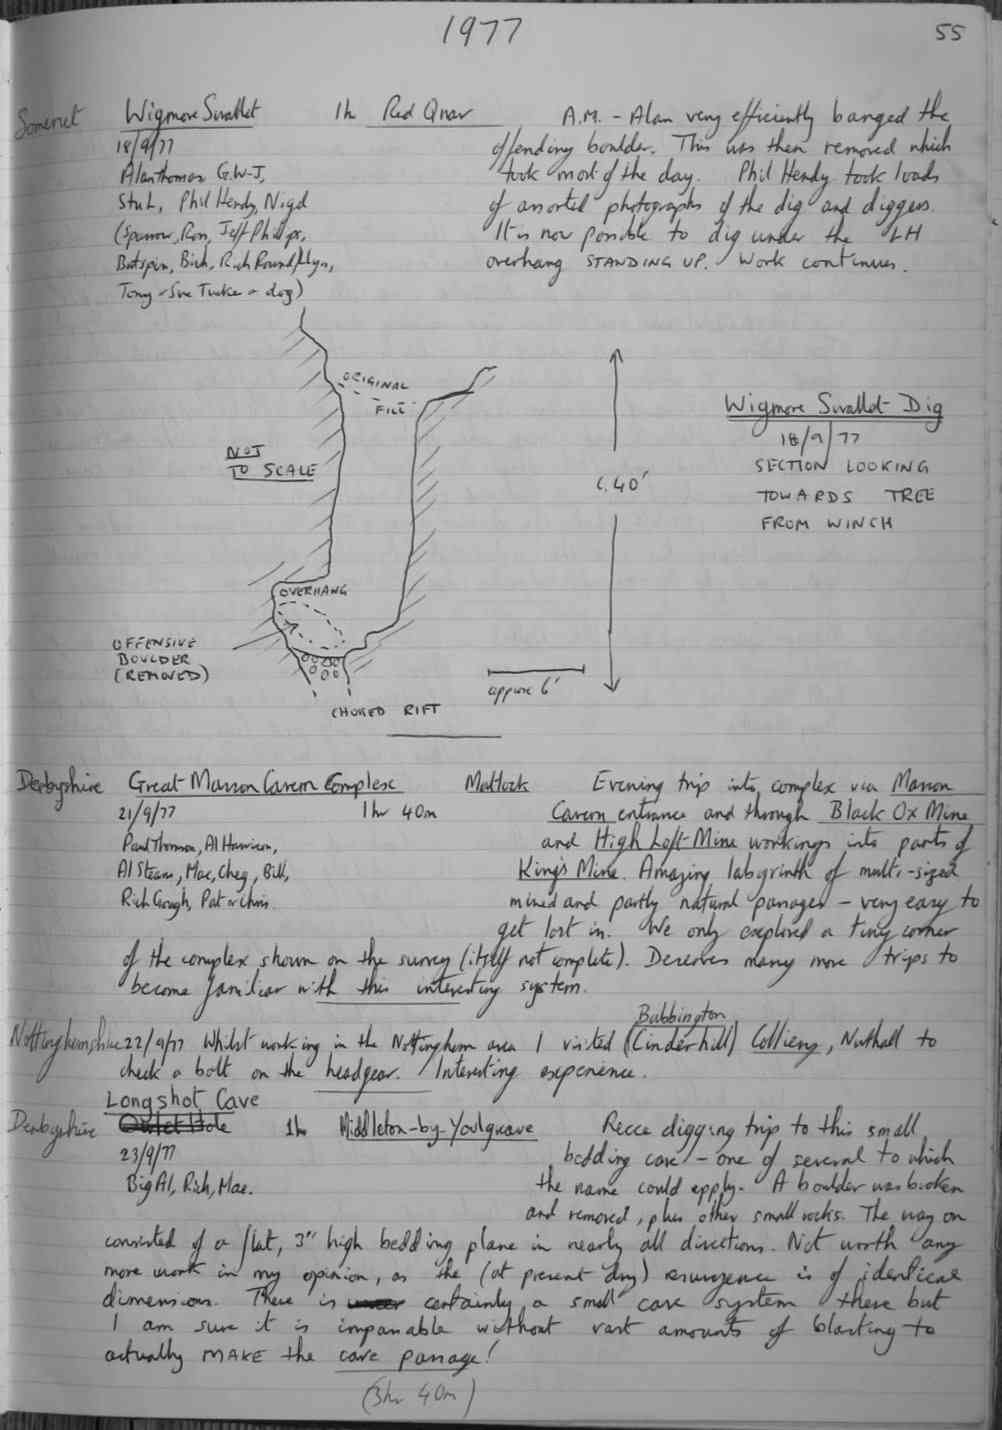 1977
55
Somerset
Wigmore Swallet 1h Red Quar
18/9/77
Alan Thomas G.W-J,
Stu L, Phil Hendy, Nigel
(Sparrow, Ron, Jeff Phillips,
Batspin, Bich, Rich
Tony + Sue Tucker + dog)
A.M. - Alan very efficiently banged the
offending boulder. This was then removed which
took most of the day. Phil Hendy took loads
of assorted photographs of the dig and diggers.
It is now possible to dig under the LH
overhang STANDING UP. Work continues.
ORIGINAL
FILL
NOT
TO SCALE
c.40'
Wigmore Swallet Dig
18/9/77
SECTION LOOKING
TOWARDS TREE
FROM WINCH
OVERHANG
OFFENSIVE
BOULDER
(REMOVED)
approx 6'
CHOKED RIFT
Derbyshire
Great Masson Cavern Complex Matlock
21/9/77 1hr 40m
Paul Thomson, Al Harrison,
Al Steans, Mac, Cheg, Bill,
Rich Gough, Pat + Chris.
Evening trip into complex via Masson
Cavern entrance and through Black Ox Mine
and High Loft Mine workings into parts of
King's Mine. Amazing labyrinth of multi-sized
mined and partly natural passages - very easy to
get lost in. We only explored a tiny corner
of the complex shown on the survey (itself not complete). Deserves many more trips to
become familiar with this interesting system.
Babbington
Nottinghamshire 22/9/77 Whilst working in the Nottingham area I visited (Cinderhill) Colliery, Nuthall to
check a bolt on the headgear. Interesting experience.
Longshot Cave
Derbyshire Outlet Hole 1h Middleton-by-Youlgrave
23/9/77
Big Al, Rich, Mac.
Recce digging trip to this small
bedding cave - one of several to which
the name could apply. A boulder was broken
and removed, plus other small rocks. The way on
consisted of a flat, 3" high bedding plane in nearly all directions. Not worth any
more work in my opinion, as the (at present dry) resurgence is of identical
dimensions. There is certainly a small cave system there but
I am sure it is impassable without vast amounts of blasting to
actually MAKE the cave passage!
(3hr 40m)